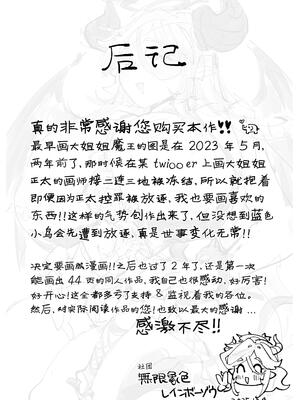 后记
真的非常感谢您购买本作!!
最早画大姐姐魔王的图是在 2023 年 5月,
两年前了,那时候在某 twiooer 上画大姐姐
正太的画师接二连三地被冻结,所以就抱着
即便因为正太控罪被放逐,我也要画喜欢的
东西!!这样的气势创作出来了,但没想到蓝色
小鸟会先遭到放逐,真是世事变化无常!!
决定要画成漫画!!之后也过了2年了,还是第一次
能画出 44 页的同人作品,我自己也很感动,好厉害!
好开心!这全都多亏了支持 & 监视着我的各位。
然后,对实际阅读作品的您!也致以最大的感谢...
感激不尽!!
社团
無限景色
レインボーゾウ